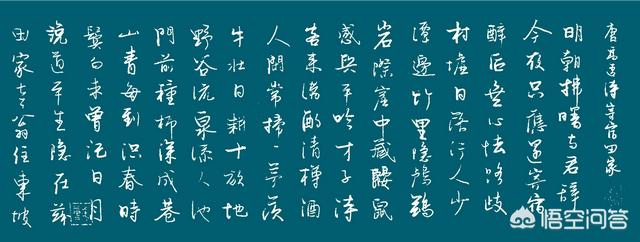 田家老翁住東坡
說道平生隱在茲
鬢白未曾記日月
山青每到识春時
門前種柳深成巷
野谷流泉添入池
牛壮日耕十畝地
人間常掃一茅茨
客来滿酌清樽酒
感興平吟才子诗
岩際崖中藏鼹鼠
潭邊竹里隐鸕鷀
村墟日落行人少
醉后無心怯路歧
今夜只應還寄宿
明朝拂曙与君辞
唐高适诗寄宿田家
悟空问答